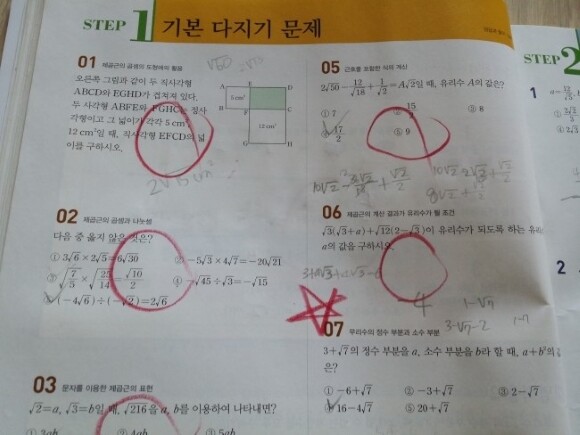 STEP 1 기본 다지기 문제
01 제곱근의 곱셈의 도형에의 활용
오른쪽 그림과 같이 두 직사각형
ABCD와 EGHD가 겹쳐져 있다.
두 사각형 ABFE와 FGHC는 정사
각형이고 그 넓이가 각각 5 cm²,
12 cm²일 때, 직사각형 EFCD의 넓
이를 구하시오.
A E D
5 cm²
B F C
12 cm²
G H
2√15 cm²
02 제곱근의 곱셈과 나눗셈
다음 중 옳지 않은 것은?
① 3√6×2√5=6√30
② −5√3×4√7=−20√21
③ √(7/5)×√(25/14)=√10/2
④ −√45÷√3=−√15
⑤ (−4√6)÷(−√2)=2√6
03 문자를 이용한 제곱근의 표현
√2=a, √3=b일 때, √216을 a, b를 이용하여 나타내면?
① 2ab ② 4ab ③ 5ab
05 근호를 포함한 식의 계산
2√50−12/√18+1/√2=A√2일 때, 유리수 A의 값은?
① 7 ② 15/2 ③ 8
④ 17/2 ⑤ 9
06 제곱근의 계산 결과가 유리수가 될 조건
√3(√3+a)+√12(2−√3)이 유리수가 되도록 하는 유리
a의 값을 구하시오.
-4
07 무리수의 정수 부분과 소수 부분
3+√7의 정수 부분을 a, 소수 부분을 b라 할 때, a+b²의
은?
① −6+√7 ② −3+√7 ③ 2−√7
④ 16−4√7 ⑤ 20+√7
STEP 2
1
2